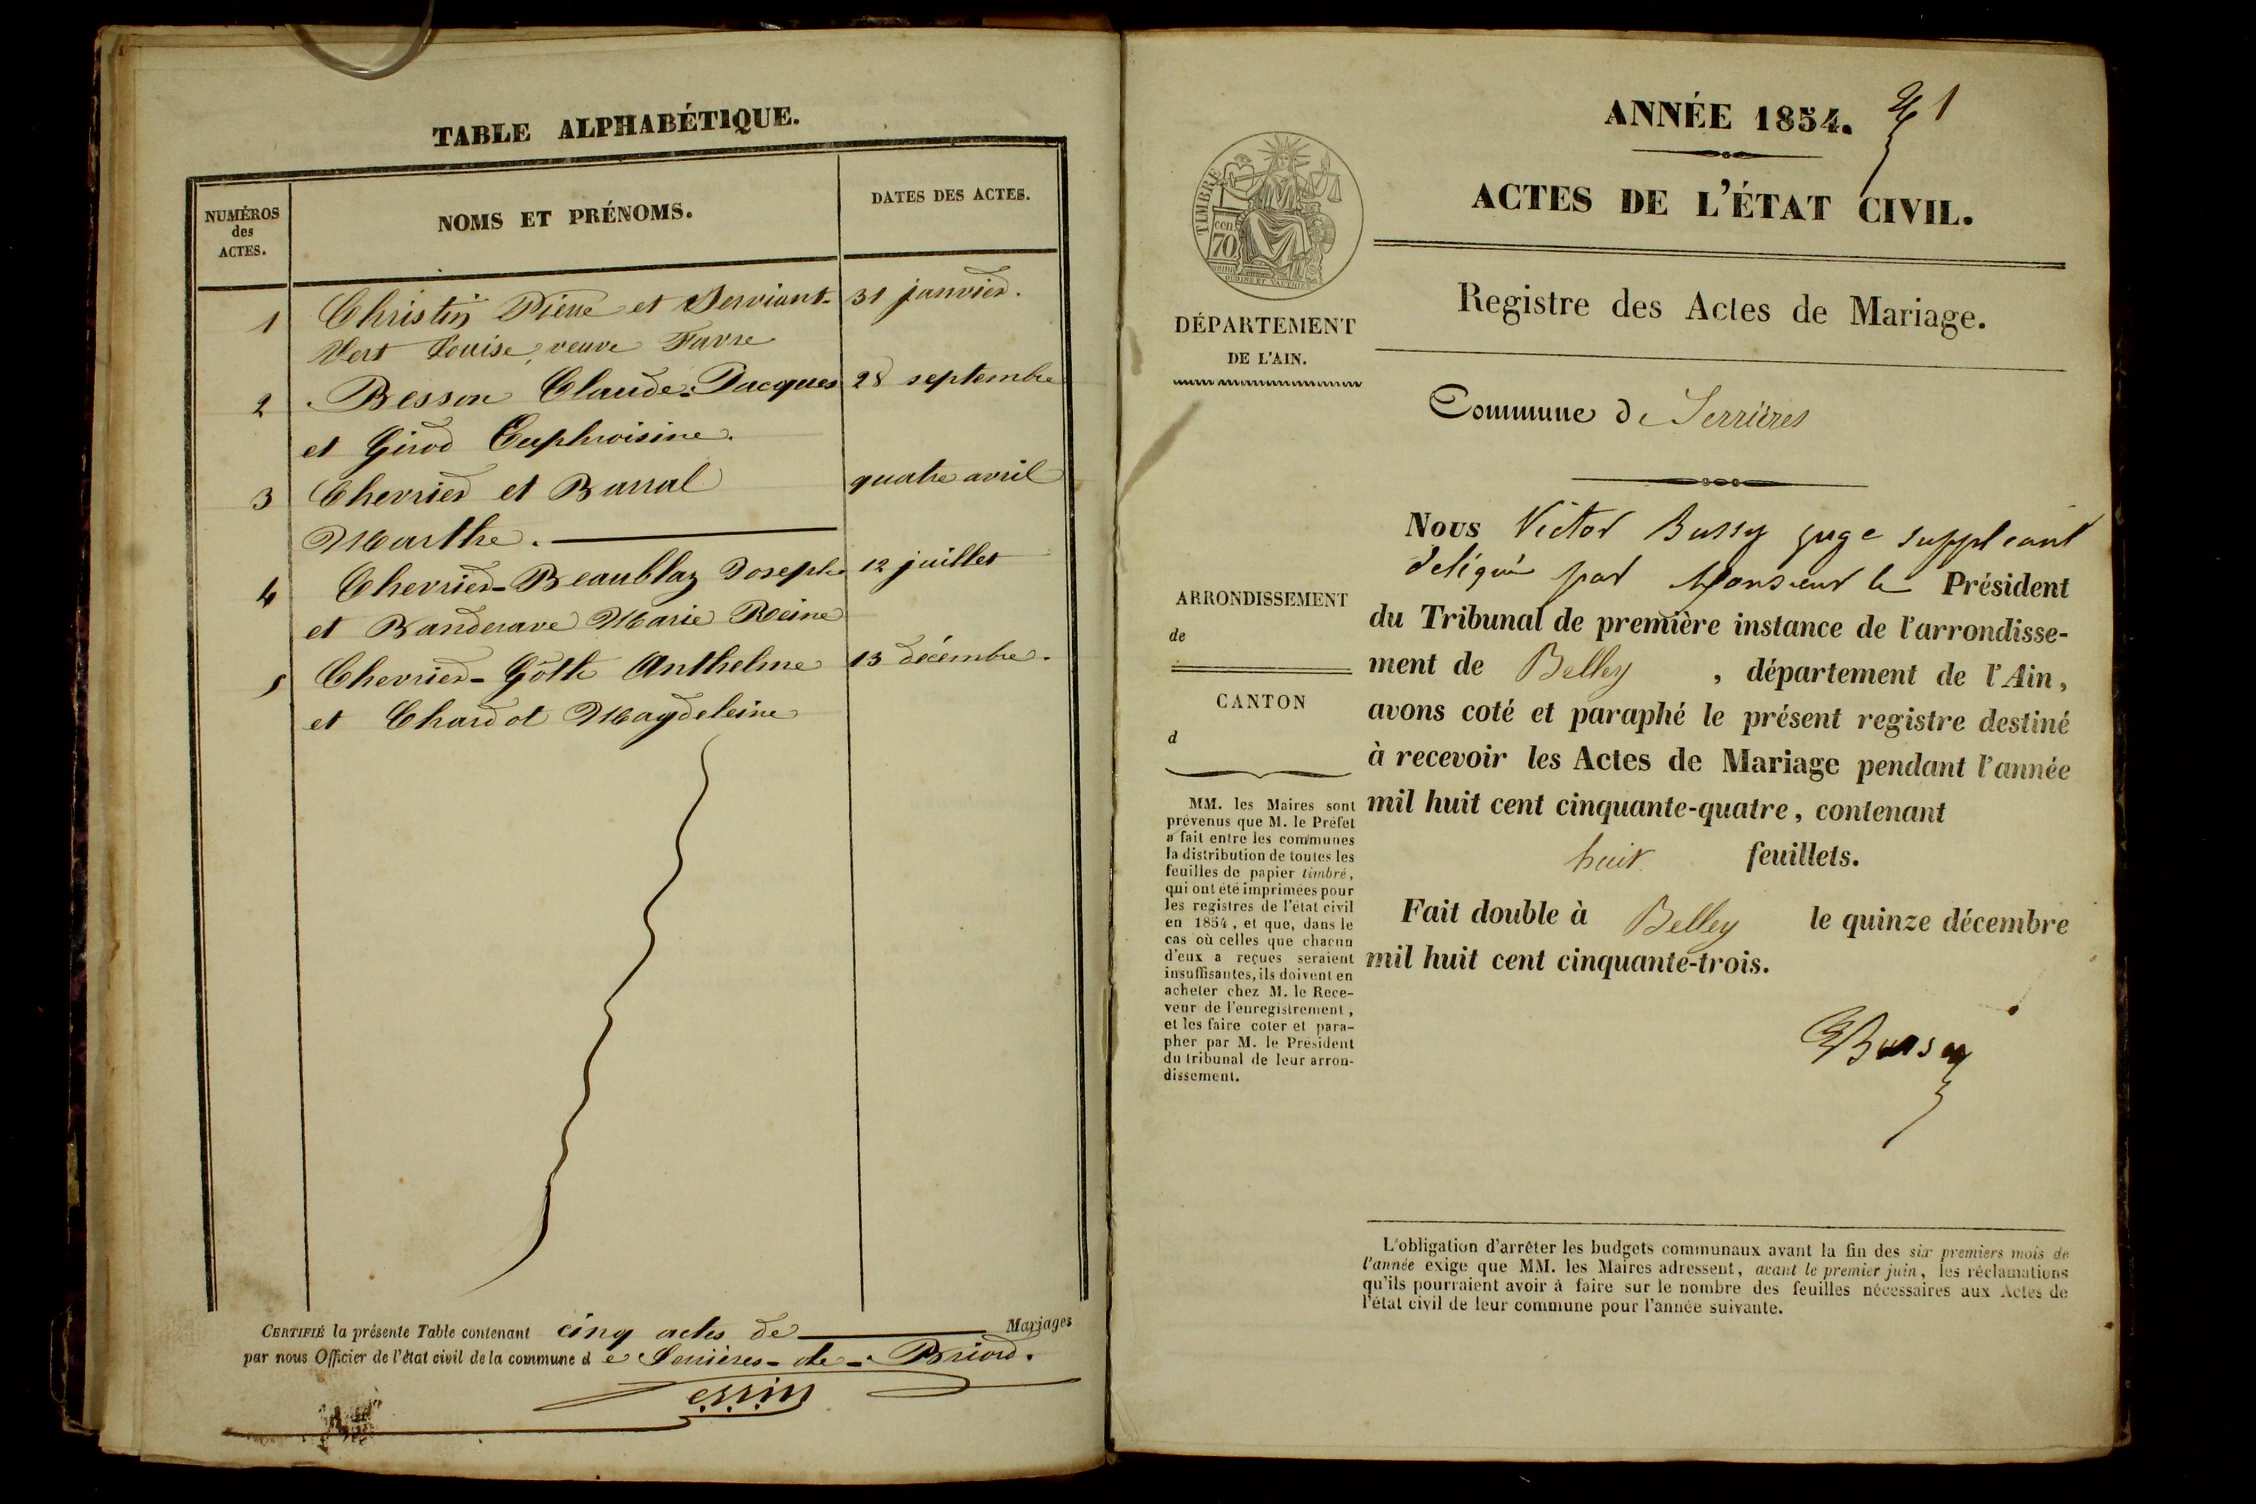 TABLE ALPHABÉTIQUE.
NUMÉROS
des
ACTES.
NOMS ET PRÉNOMS.
DATES DES ACTES.
1 Christin Pierre et Serviant- 31 janvier.
Vert Louise, veuve Favre
2 Besson Claude-Jacques 28 septembre
et Girod Euphroisine.
3 Chevrier et Barral quatre avril
Marthe.
4 Chevrier-Beaublaz Joseph 12 juillet
et Banderave Marie Reine
5 Chevrier-Goth Anthelme 13 décembre.
et Chardot Magdeleine
CERTIFIÉ la présente Table contenant cinq actes de Mariages
par nous Officier de l'état civil de la commune de Serrières-de-Briord.
ANNÉE 1854.
1
ACTES DE L'ÉTAT CIVIL.
TIMBRE
cen
70
Registre des Actes de Mariage.
DÉPARTEMENT
DE L'AIN.
Commune de Serrières
Nous Victor Bussy juge suppleant
delégué par Monsieur le Président
du Tribunal de première instance de l'arrondisse-
ment de Belley, département de l'Ain,
avons coté et paraphé le présent registre destiné
à recevoir les Actes de Mariage pendant l'année
mil huit cent cinquante-quatre, contenant
huit feuillets.
Fait double à Belley le quinze décembre
mil huit cent cinquante-trois.
Bussy
ARRONDISSEMENT
de
CANTON
d
MM. les Maires sont
prévenus que M. le Préfet
a fait entre les communes
la distribution de toutes les
feuilles de papier timbré,
qui ont été imprimées pour
les registres de l'état civil
en 1854, et que, dans le
cas où celles que chacun
d'eux a reçues seraient
insuffisantes, ils doivent en
acheter chez M. le Rece-
veur de l'enregistrement,
et les faire coter et para-
pher par M. le Président
du tribunal de leur arron-
dissement.
L'obligation d'arrêter les budgets communaux avant la fin des six premiers mois de
l'année exige que MM. les Maires adressent, avant le premier juin, les réclamations
qu'ils pourraient avoir à faire sur le nombre des feuilles nécessaires aux Actes de
l'état civil de leur commune pour l'année suivante.